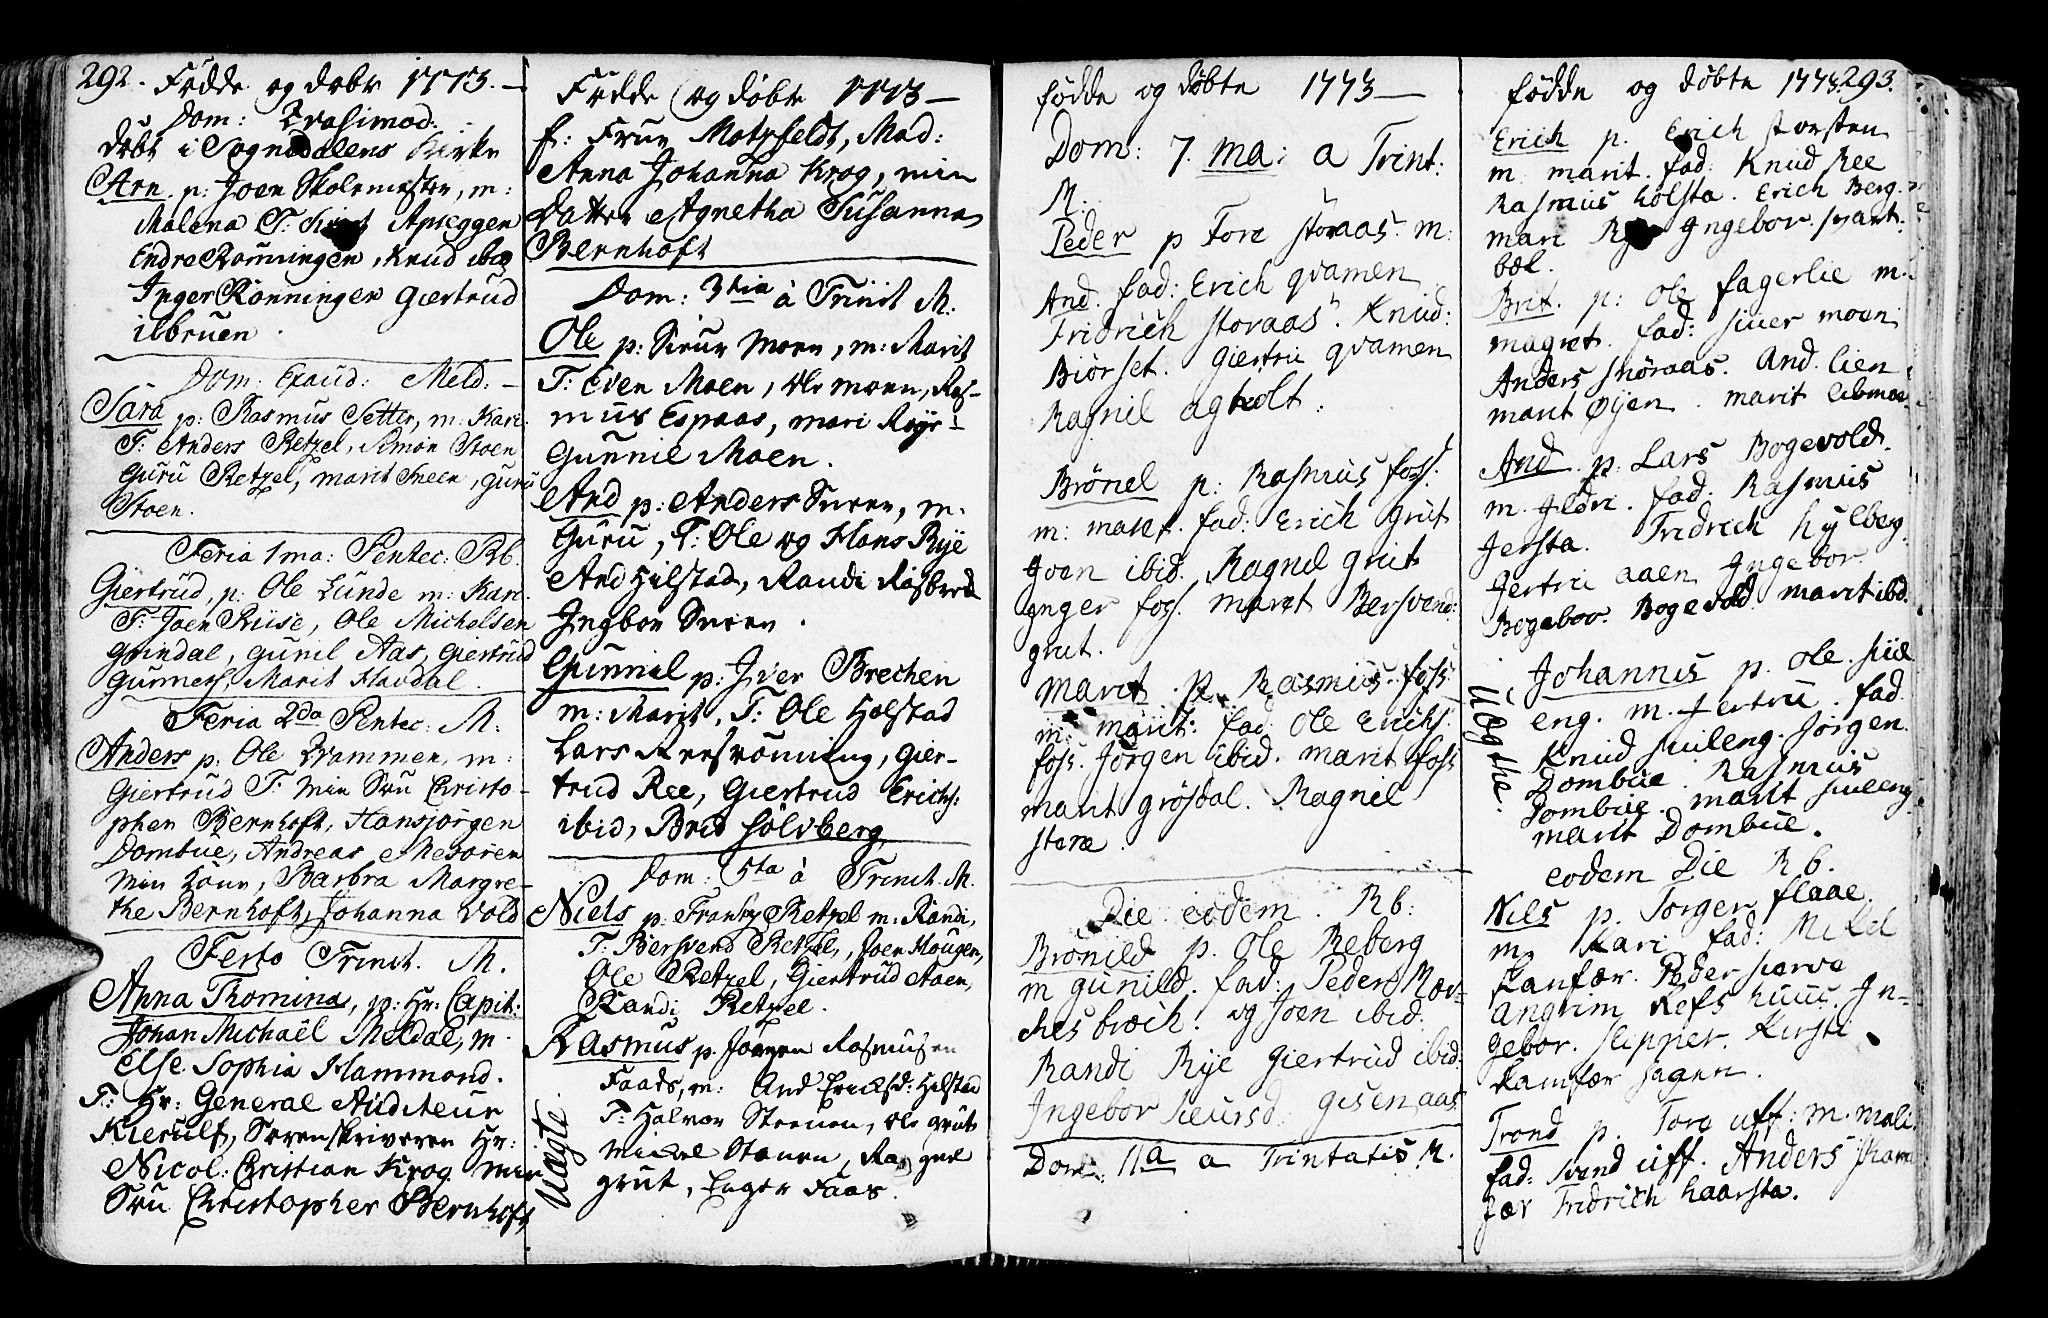 292. Fødde og døbr 1773.
Dom: Qvasimod:
døbt i Sognedalens Kirke
Arn p: Joen Skolemester, m:
Malena T: Apleggen
Endre Rønningen, Knud ibid
Inger Rønningen Giertrud
ilbruen.
Dom: Exaud: Meld:
Sara p: Rasmus Setter, m: Kari
T: Anders Retzel, Simon Stoen
Guru Retzel, marit Sneen, guru
Stoen.
Feria 1ma: Pentec: Rb.
Giertrud, p: Ole Lunde m: Kari
T: Joen Riise, Ole Michelsen
Grindal, gunil Aas, Giertrud
Gunners, Marit Havdal.
Feria 2da Pentec: M:
Anders p: Ole Krammen, m:
Giertrud T: min Søn Christo-
pher Bernhoft, Hansjørgen
Dombue, Andreas Mesøren
min Kone, Barbra Margre-
the Bernhoft, Johanna Vold
Festo Trinit. M.
Anna Thomina, p: Hr: Capit:
Johan Michaël Meldal, m.
Else Sophia Hammond.
T: Hr: General Auditeur
Kierulf, Sorenskriveren Hr:
Nicol: Christian Krog min
Søn Christopher Bernhoft,
Fødde og døbr 1773
f: Frue Motzfeldt, Mad:
Anna Johanna Krog, min
datter Agnetha Susanna
Bernhoft
Dom: 3tia à Trinit M:
Ole p: Siour Moen, m: Marit
T: Even Moen, Ole moen, Ras-
mus Espaas, mari Rye
Gunnil Moen.
And p: Anders Sneen, m.
Guru, T: Ole og Hans Rye
And Hilstad, Randi Risbred
Ingbor Sneen.
Gunnil p: Iver Brechen
m: Marit, T: Ole Holstad
Lars Reesrønning, Gier-
trud Ree, Giertrud Erichs:
ibid, Brid Sølvberg
Dom: 5ta à Trinit. M.
Niels p: Frantz Retzel m: Randi,
T: Bersvend Retzel, Joen Hougen,
Ole Retzel, Giertrud Aaen,
Randi Retzel.
Rasmus p. Jørgen Rasmusen
Faads, m: And Ericksd: Hilstad
T: Halvor Steenen, Ole grut
Mickel Stanen, Ragnel
grut, Inger Faas.
Uægte.
fødde og døbte 1773
Dom: 7. ma: a Trint:
M.
Peder p Tore storaas. m:
And. fad: Erich qvamen
Fridrich storaas. Knud:
Biørset. Giertrü qvamen
Ragnil agholt.
Brønel p: Rasmus foss.
m: maret. fad: Erich Grut
Joen ibid. Ragnel Grut
Inger foss. maret Bersvend:
grut.
Marit. p. Rasmus. foss.
m: marit: fad: Ole Erichs.
foss. Jørgen ibid. marit foss
marit grøsdal. Ragnel
støre.
Die eodem. Rb:
Brønild p. Ole Reberg
m gunild. fad: Peder Mær-
chesbrech. og Joen ibid.
Randi Rye Giertrud ibid:
Ingebor siursd. Gisenaas
Dom: 11a a Trintatis M.
fødde og døbte 1773. 293.
Erich p. Erich storsten
m. marit. fad: Knud Ree
Rasmus holsta. Erich Berg.
mari Rye Ingebor. svart.
bæk.
Brit. p: Ole fagerlie m.
magret. fad: siver moen
Anders snøraas. And. lien
marit Øyen. marit
And. p: Lars Bogevold.
m. Ildri. fad. Rasmus
Jersta. Fridrich hylberg
Jertrü aaen Ingebor
Bogebor. Bogevold marit ibd.
Johannis p. Ole. suil
eng. m. Jertru. fad.
Knud suileng. Jørgen.
Dombüe. Rasmus
Dombüe. marit suileng.
marit Dombüe.
Uægthe.
eodem Die Rb.
Nils p. Torger flaae.
m. Kari fad: Mikel
Kanfær. Peder
Angrim Refs huus. In-
gebor. slepper. Kirsti
kamfær hagen.
Trond p. Tore uff: m. mali
fad: svend uff. Anders
fær Fridrich haarsta.